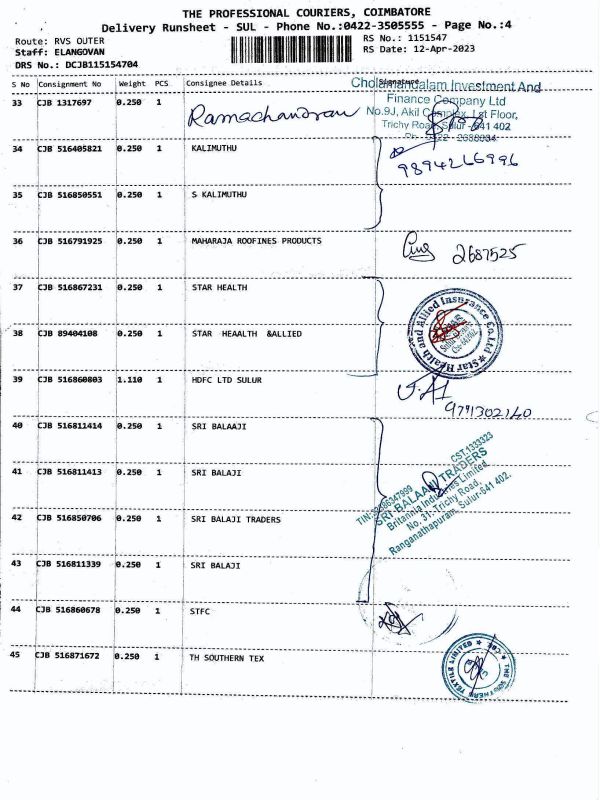 THE PROFESSIONAL COURIERS, COIMBATORE
Delivery Runsheet - SUL - Phone No.:0422-3505555 - Page No.:4
Route: RVS OUTER
RS No.: 1151547
Staff: ELANGOVAN
RS Date: 12-Apr-2023
DRS No.: DCJB115154704
S No Consignment No Weight PCS Consignee Details Signature
Cholamandalam Investment And
Finance Company Ltd
No.9J, Akil Complex, Ist Floor,
Trichy Road, Sulur-641 402
33 CJB 1317697 0.250 1 Ramachandran
34 CJB 516405821 0.250 1 KALIMUTHU
9894266996
35 CJB 516850551 0.250 1 S KALIMUTHU
36 CJB 516791925 0.250 1 MAHARAJA ROOFINES PRODUCTS
2687525
37 CJB 516867231 0.250 1 STAR HEALTH
38 CJB 89404108 0.250 1 STAR HEAALTH &ALLIED
Star Health and Allied Insurance Co.Ltd
39 CJB 516860803 1.110 1 HDFC LTD SULUR
9791302140
40 CJB 516811414 0.250 1 SRI BALAAJI
41 CJB 516811413 0.250 1 SRI BALAJI
CST.1333323
SRI BALAAJI TRADERS
Britannia Industries Limited,
No. 31, Trichy Road,
Ranganathapuram, Sulur-641 402.
42 CJB 516850706 0.250 1 SRI BALAJI TRADERS
43 CJB 516811339 0.250 1 SRI BALAJI
44 CJB 516860678 0.250 1 STFC
45 CJB 516871672 0.250 1 TH SOUTHERN TEX
THE SOUTHERN TEXTILE LIMITED